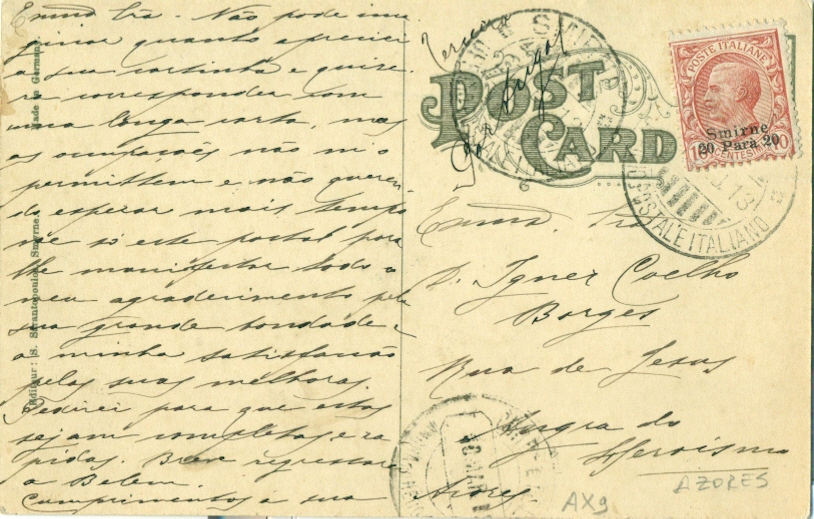 Exma Sra. Não pode ima
ginar quanto apreciei
a sua cartinha e quize-
ra corresponder com
uma longa carta, mas
as occupações não m'o
permittem e não queren-
do esperar mais tempo
vae só este postal para
lhe manifestar todo o
meu agradecimento pela
sua grande bondade e
a minha satisfação
pelas suas melhoras.
Pedirei para que estas
sejam completas e ra
pidas. Breve regressarei
a Belem.
Cumprimentos a sua
Made in Germany.
Editeur: S. Sarantopoulos, Smyrne.
Terceira
POST
CARD
POSTE ITALIANE
Smirne
20 Para 20
10 CENTESIMI 10
SMIRNE
POSTALE ITALIANO
13
Exma. Sra
D. Ignez Coelho
Borges
Rua de Jesus
Angra do
Heroismo
Açores
AX9
AZORES